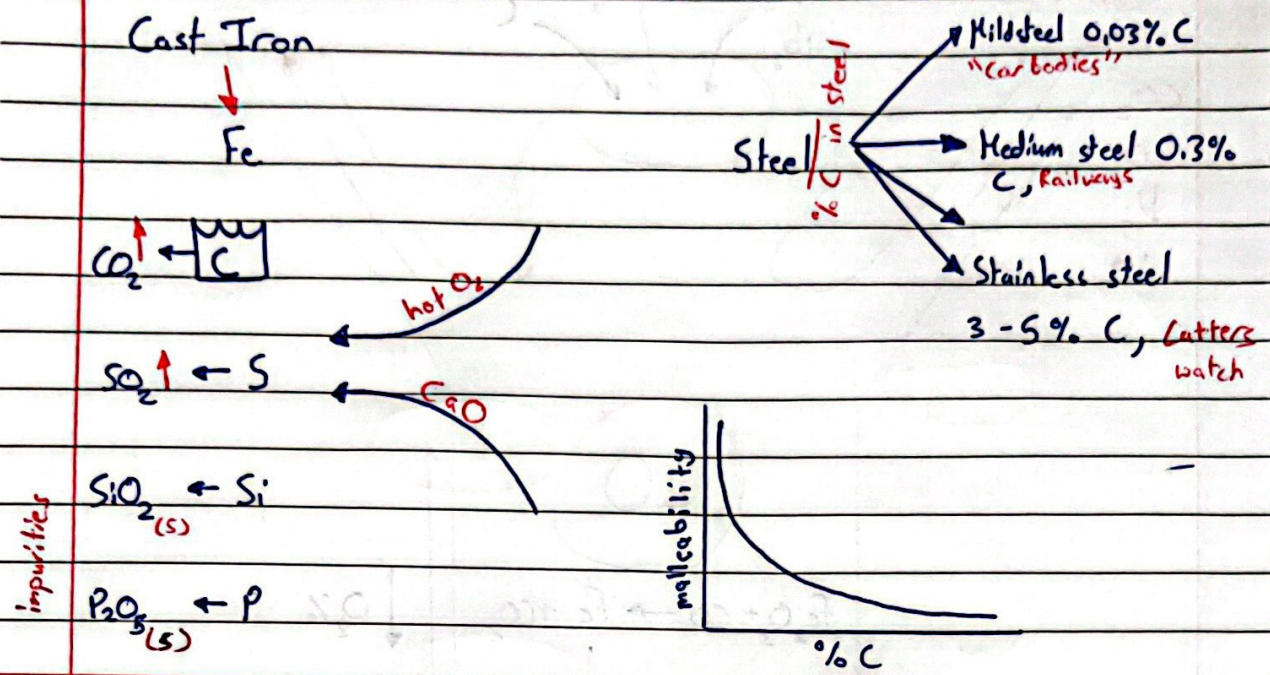 Cast Iron
Fe
CO₂ ← C
hot O₂
SO₂ ← S
CaO
SiO₂(s) ← Si
P₂O₅(s) ← P
impurities
Steel
% C in steel
Mildsteel 0,03% C
"Car bodies"
Medium steel 0.3%
C, Railways
Stainless steel
3-5% C, Cutters
watch
malleability
% C